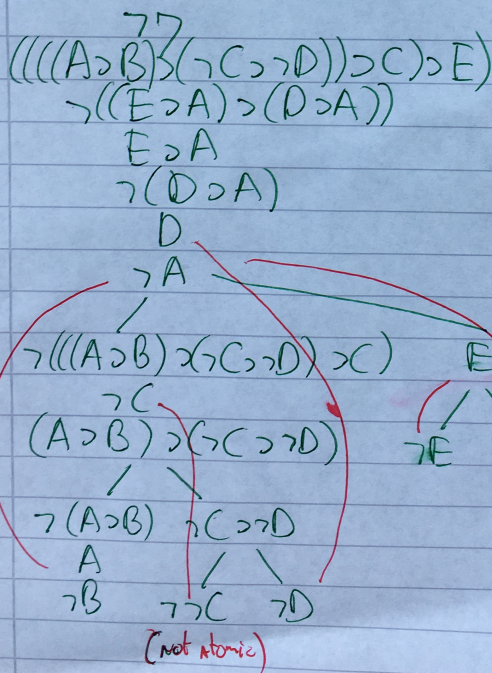 ¬¬
((((A⊃B)⊃(¬C⊃¬D))⊃C)⊃E)
¬((E⊃A)⊃(D⊃A))
E⊃A
¬(D⊃A)
D
¬A
¬(((A⊃B)⊃(¬C⊃¬D))⊃C) E
¬C
(A⊃B)⊃(¬C⊃¬D) ¬E
¬(A⊃B) ¬C⊃¬D
A
¬B ¬¬C ¬D
(not atomic)